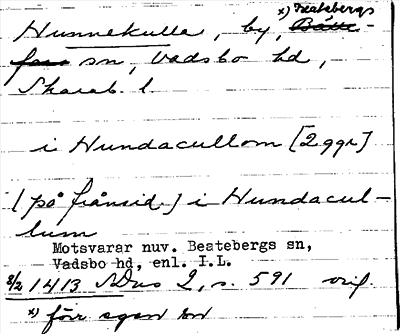 x) Beatebergs
Hunnekulla, by, Bätte-
fors sn, Vadsbo hd,
Skarab. l
i Hundacullom [2 ggr]
[på frånsid.] i Hundacul-
lum
Motsvarar nuv. Beatebergs sn,
Vadsbo hd, enl. I.L.
8/2 1413 SDns 2, s. 591 orig.
x) förr egen sn